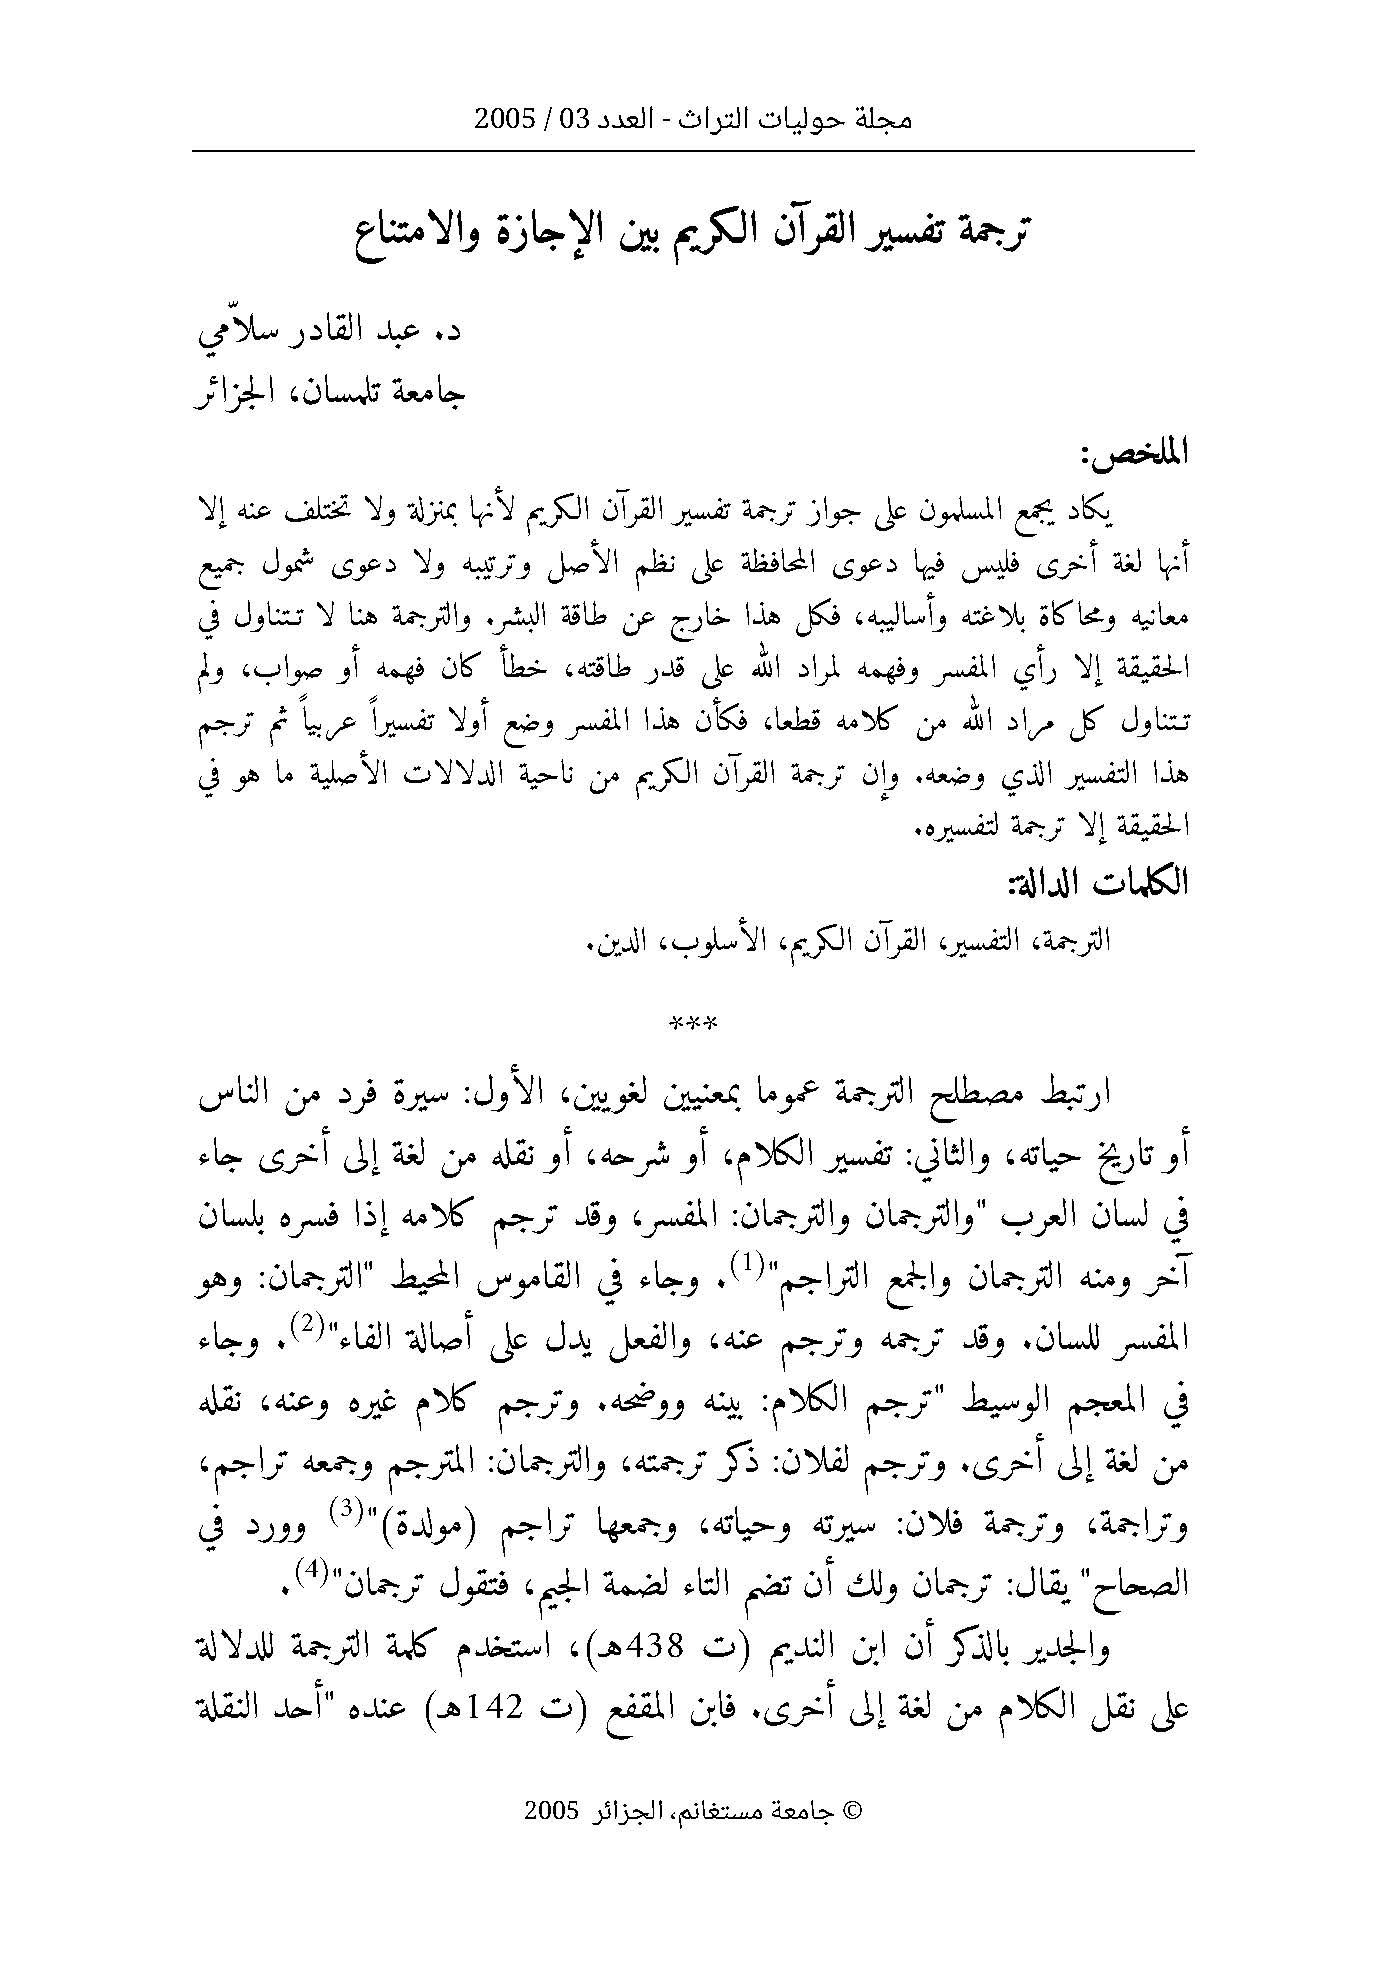 مجلة حوليات التراث - العدد 03 / 2005
ترجمة تفسير القرآن الكريم بين الإجازة والامتناع
د. عبد القادر سلاّمي
جامعة تلمسان، الجزائر
الملخص:
يكاد يجمع المسلمون على جواز ترجمة تفسير القرآن الكريم لأنها بمنزلة ولا تختلف عنه إلا
أنها لغة أخرى فليس فيها دعوى المحافظة على نظم الأصل وترتيبه ولا دعوى شمول جميع
معانيه ومحاكاة بلاغته وأساليبه، فكل هذا خارج عن طاقة البشر. والترجمة هنا لا تتناول في
الحقيقة إلا رأي المفسر وفهمه لمراد الله على قدر طاقته، خطأ كان فهمه أو صواب، ولم
تتناول كل مراد الله من كلامه قطعا، فكأن هذا المفسر وضع أولا تفسيراً عربياً ثم ترجم
هذا التفسير الذي وضعه. وإن ترجمة القرآن الكريم من ناحية الدلالات الأصلية ما هو في
الحقيقة إلا ترجمة لتفسيره.
الكلمات الدالة:
الترجمة، التفسير، القرآن الكريم، الأسلوب، الدين.
***
ارتبط مصطلح الترجمة عموما بمعنيين لغويين، الأول: سيرة فرد من الناس
أو تاريخ حياته، والثاني: تفسير الكلام، أو شرحه، أو نقله من لغة إلى أخرى جاء
في لسان العرب "والترجمان والترجمان: المفسر، وقد ترجم كلامه إذا فسره بلسان
آخر ومنه الترجمان والجمع التراجم"(1). وجاء في القاموس المحيط "الترجمان: وهو
المفسر للسان. وقد ترجمه وترجم عنه، والفعل يدل على أصالة الفاء"(2). وجاء
في المعجم الوسيط "ترجم الكلام: بينه ووضحه. وترجم كلام غيره وعنه، نقله
من لغة إلى أخرى. وترجم لفلان: ذكر ترجمته، والترجمان: المترجم وجمعه تراجم،
وتراجمة، وترجمة فلان: سيرته وحياته، وجمعها تراجم (مولدة)"(3) وورد في
الصحاح" يقال: ترجمان ولك أن تضم التاء لضمة الجيم، فتقول ترجمان"(4).
والجدير بالذكر أن ابن النديم (ت 438هـ)، استخدم كلمة الترجمة للدلالة
على نقل الكلام من لغة إلى أخرى. فابن المقفع (ت 142هـ) عنده "أحد النقلة
© جامعة مستغانم، الجزائر 2005